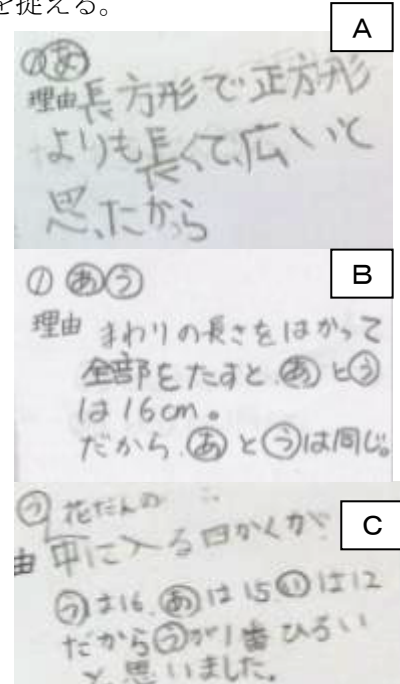 を捉える。
A
①あ
理由長方形で正方形
よりも長くて、広いと
思ったから
B
① あう
理由 まわりの長さをはかって
全部をたすと、あとう
は16cm。
だから、あとうは同じ。
C
う 花だんの
由 中に入る四かくが
うは16、あは15いは12
だからうが1番ひろい
と思いました。